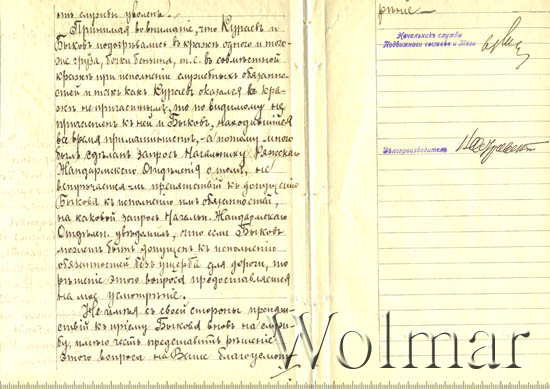 отъ службы уволенъ.
Принимая во вниманіе, что Кураевъ и
Быковъ подозрѣвались въ кражѣ одного и того-
же груза, бочки бензина, т. е. въ совмѣстной
кражѣ при исполненіи служебныхъ обязанно-
стей и такъ какъ Кураевъ оказался въ кра-
жѣ не причастнымъ, то по видимому не
причастенъ къ ней и Быковъ, находившійся
все время
былъ сдѣланъ запросъ Начальнику Ряжскаго
Жандармскаго Отдѣленія о томъ, не
встрѣчается ли препятствій къ допущенію
Быкова къ исполненію имъ обязанностей,
на каковой запросъ Начальн. Жандармскаго
Отдѣлен. увѣдомилъ, что если Быковъ
можетъ быть допущенъ къ исполненію
обязанностей безъ ущерба для дороги, то
рѣшеніе этого вопроса предоставляется
на мое усмотрѣніе.
Не имѣя съ своей стороны препят-
ствій къ пріему Быкова вновь на служ-
бу, имѣю честь представить рѣшеніе
этого вопроса на Ваше благоусмот-
рѣніе.
Начальникъ службы
Подвижного состава и Тяги
Дѣлопроизводитель
Wolmar